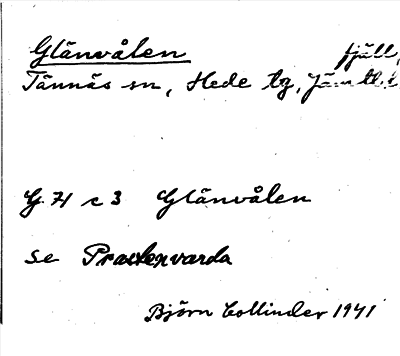 Glänvålen fjäll,
Tännäs sn, Hede tg, Jämtl. l
G. 71 c 3 Glänvålen
se
Björn Collinder 1941